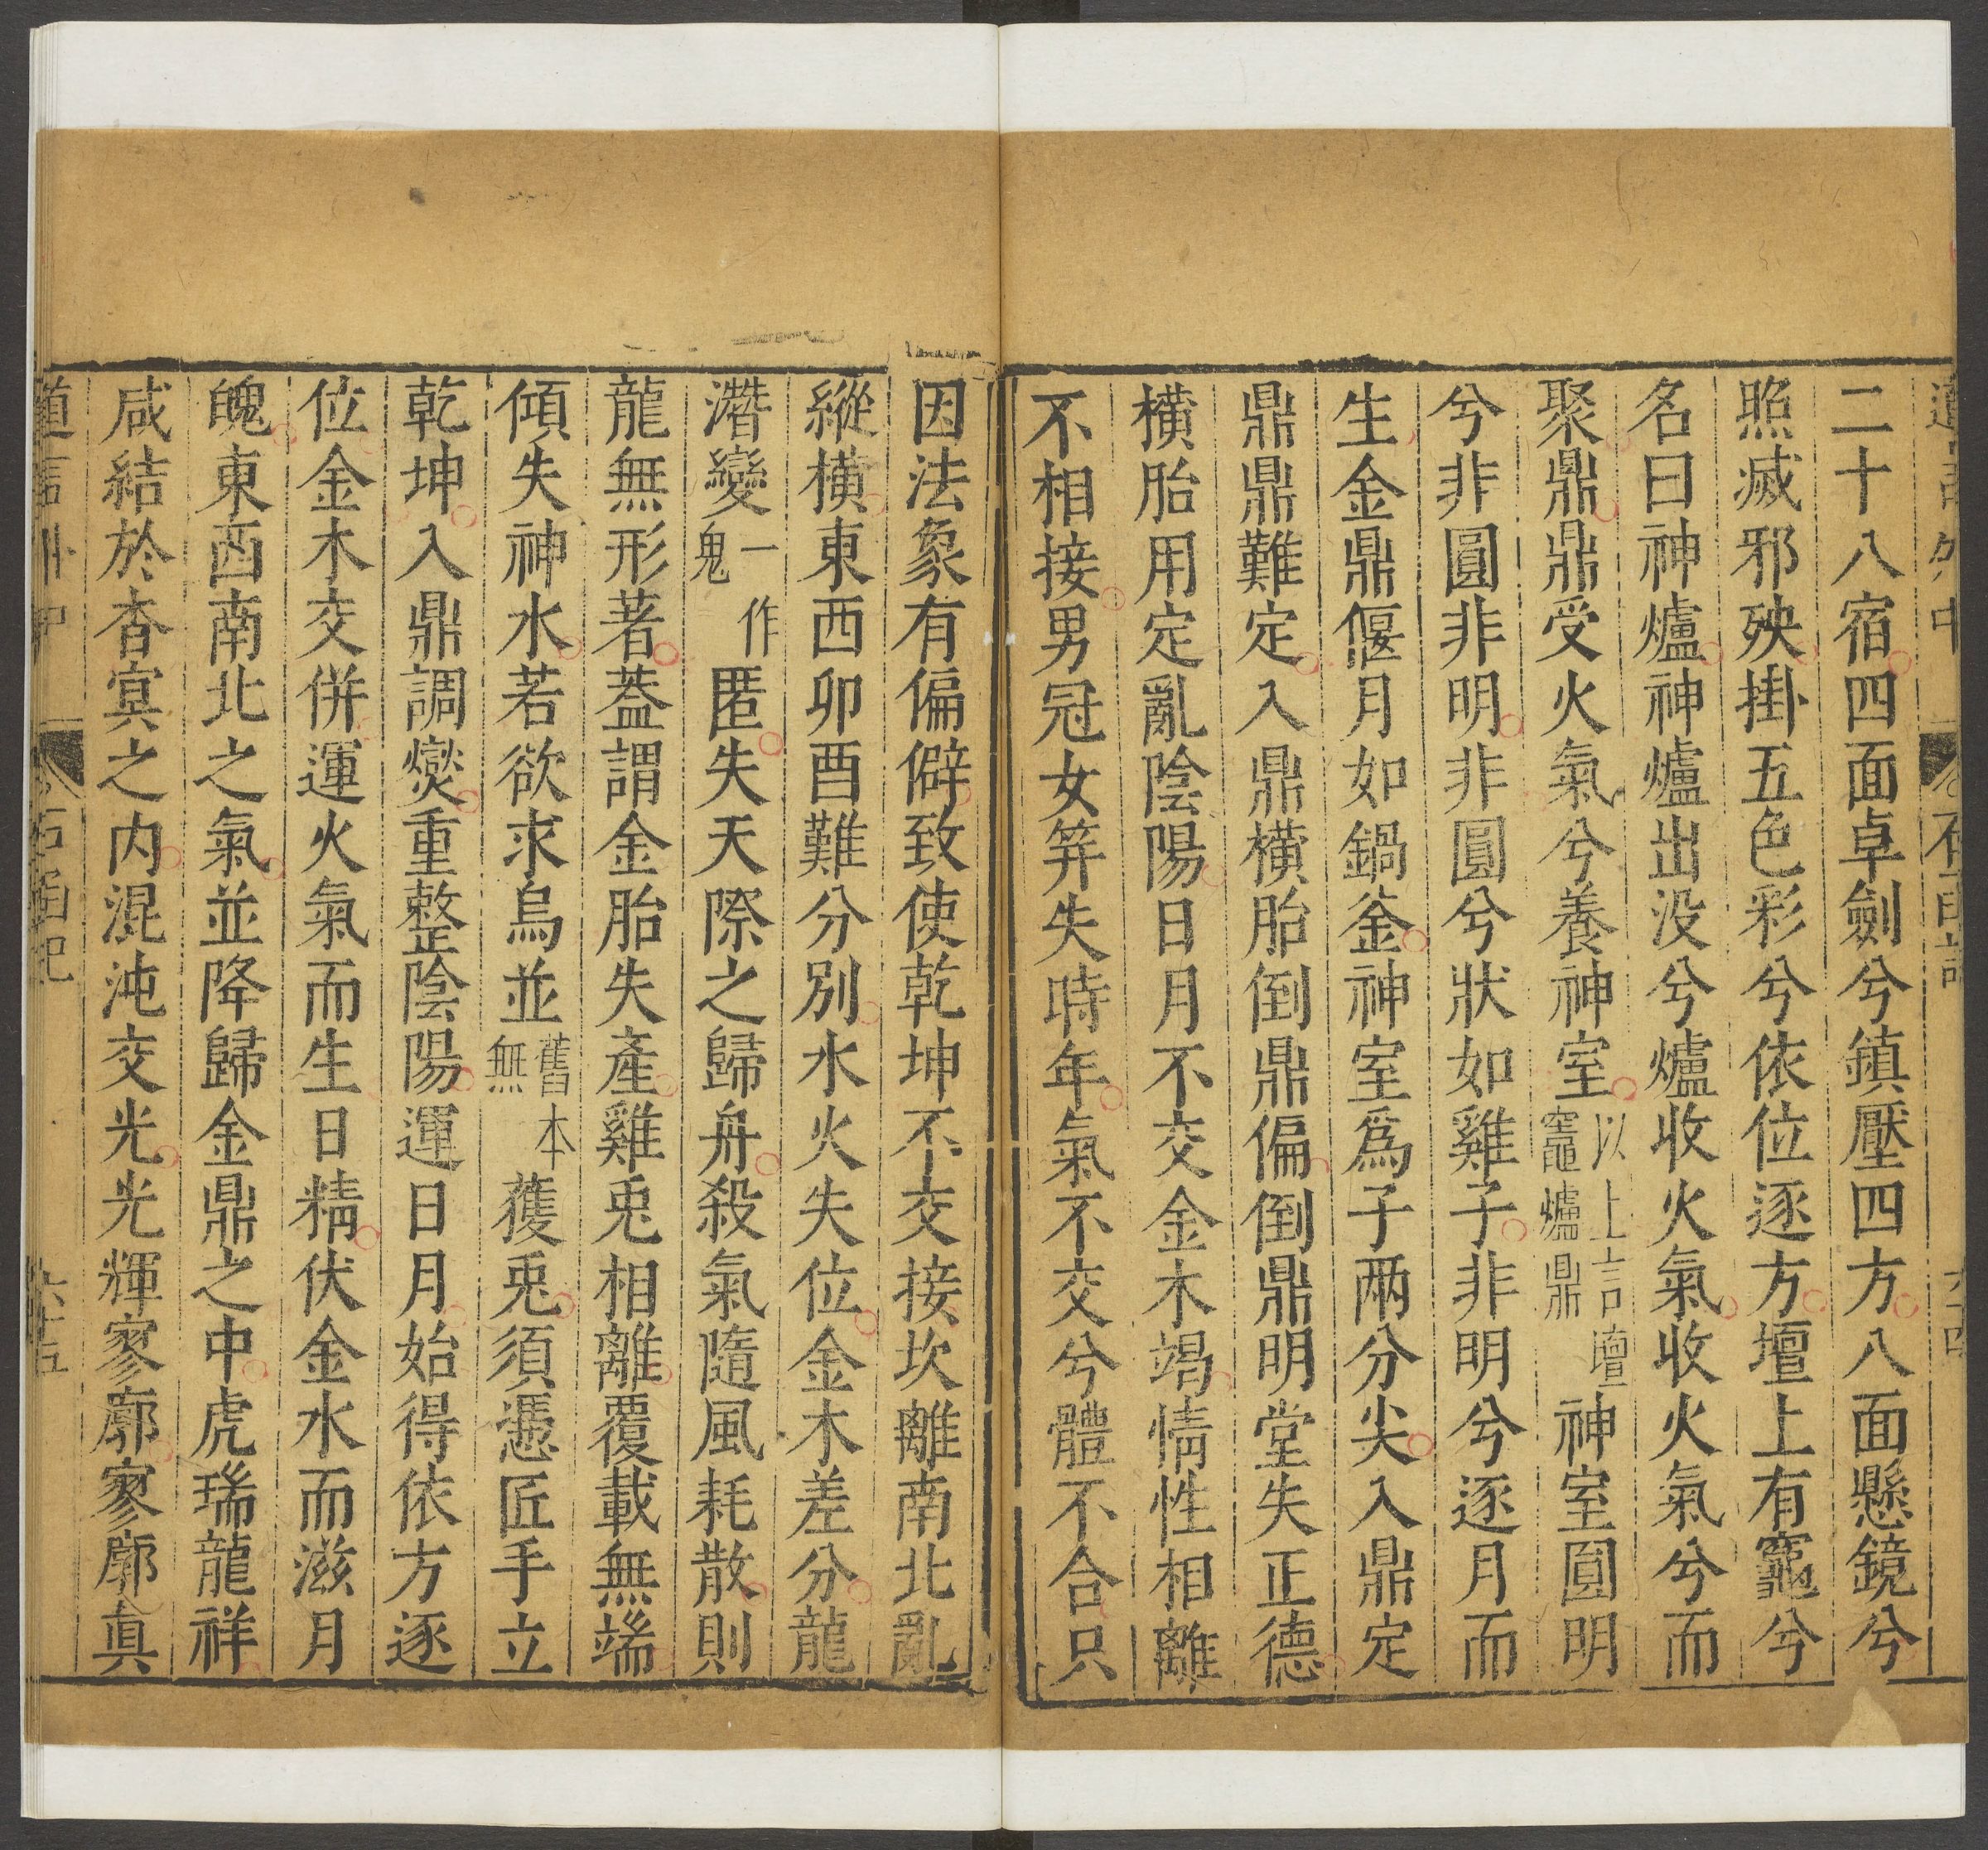 二十八宿四面卓劍兮鎮壓四方八面懸鏡兮
照滅邪殃掛五色彩兮依位逐方壇上有竈兮
名曰神爐神爐出没兮爐收火氣收火氣兮而
聚鼎鼎受火氣兮養神室以上言壇竈爐鼎神室圓明
兮非圓非明非圓兮狀如雞子非明兮逐月而
生金鼎偃月如鍋釜神室為子兩分尖入鼎定
鼎鼎難定入鼎橫胎倒鼎偏倒鼎明堂失正德
橫胎用定亂陰陽日月不交金木竭情性相離
不相接男冠女筓失時年氣不交兮體不合只
因法象有偏僻致使乾坤不交接坎離南北亂
縱橫東西卯酉難分別水火失位金木差分龍
潛變一作鬼匿失天際之歸舟殺氣隨風耗散則
龍無形著葢謂金胎失產雞兎相離覆載無端
傾失神水若欲求烏並舊本無獲兎須憑匠手立
乾坤入鼎調爕重整陰陽運日月始得依方逐
位金木交併運火氣而生日精伏金水而滋月
魄東西南北之氣並降歸金鼎之中虎瑞龍祥
咸結於杳冥之内混沌交光光輝寥廓寥廓真
道言外中
石函記
六十五